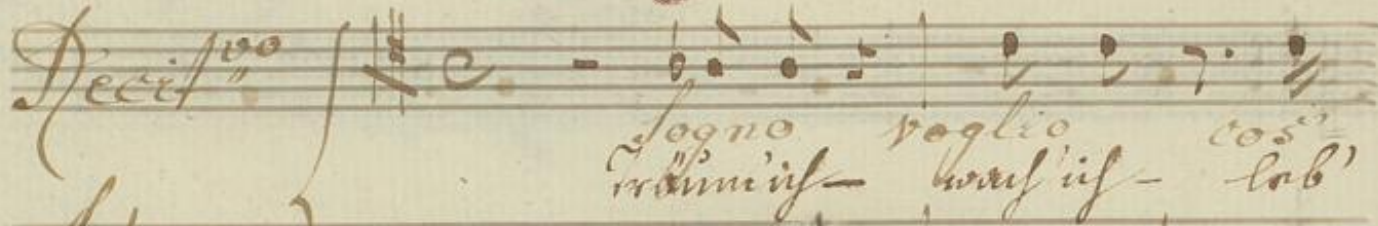 Recit:vo
Sogno voglio cos'
Träum' ich – wach' ich – leb'